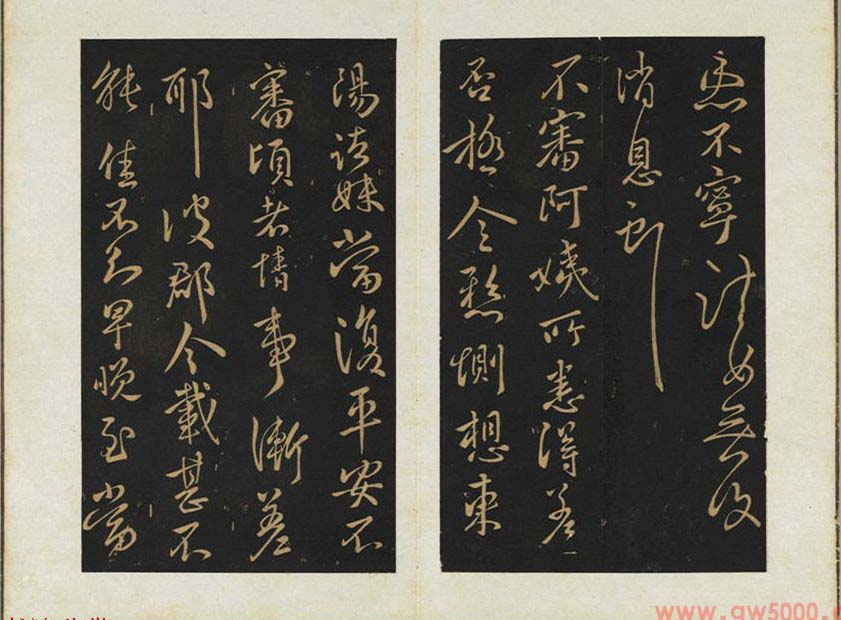 不寧 無復
消息
不審阿姨所患得差
否極令懸惻想東
陽諸妹當復平安不
審頃者情事漸差
耶彼郡今載甚不
能佳不知早晚至當
www.gw5000.c